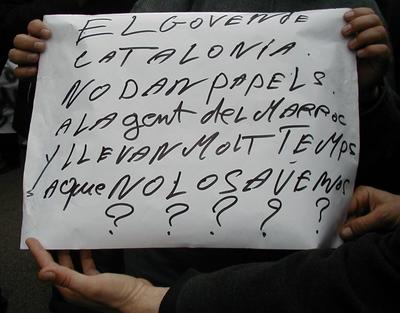 EL GOVEN DE
CATALONIA.
NO DAN PAPELS.
A LA gent del MARROC
Y LLEVAN MOLT TEMPS
Aque NO LO SAVEMOS
? ? ? ? ?